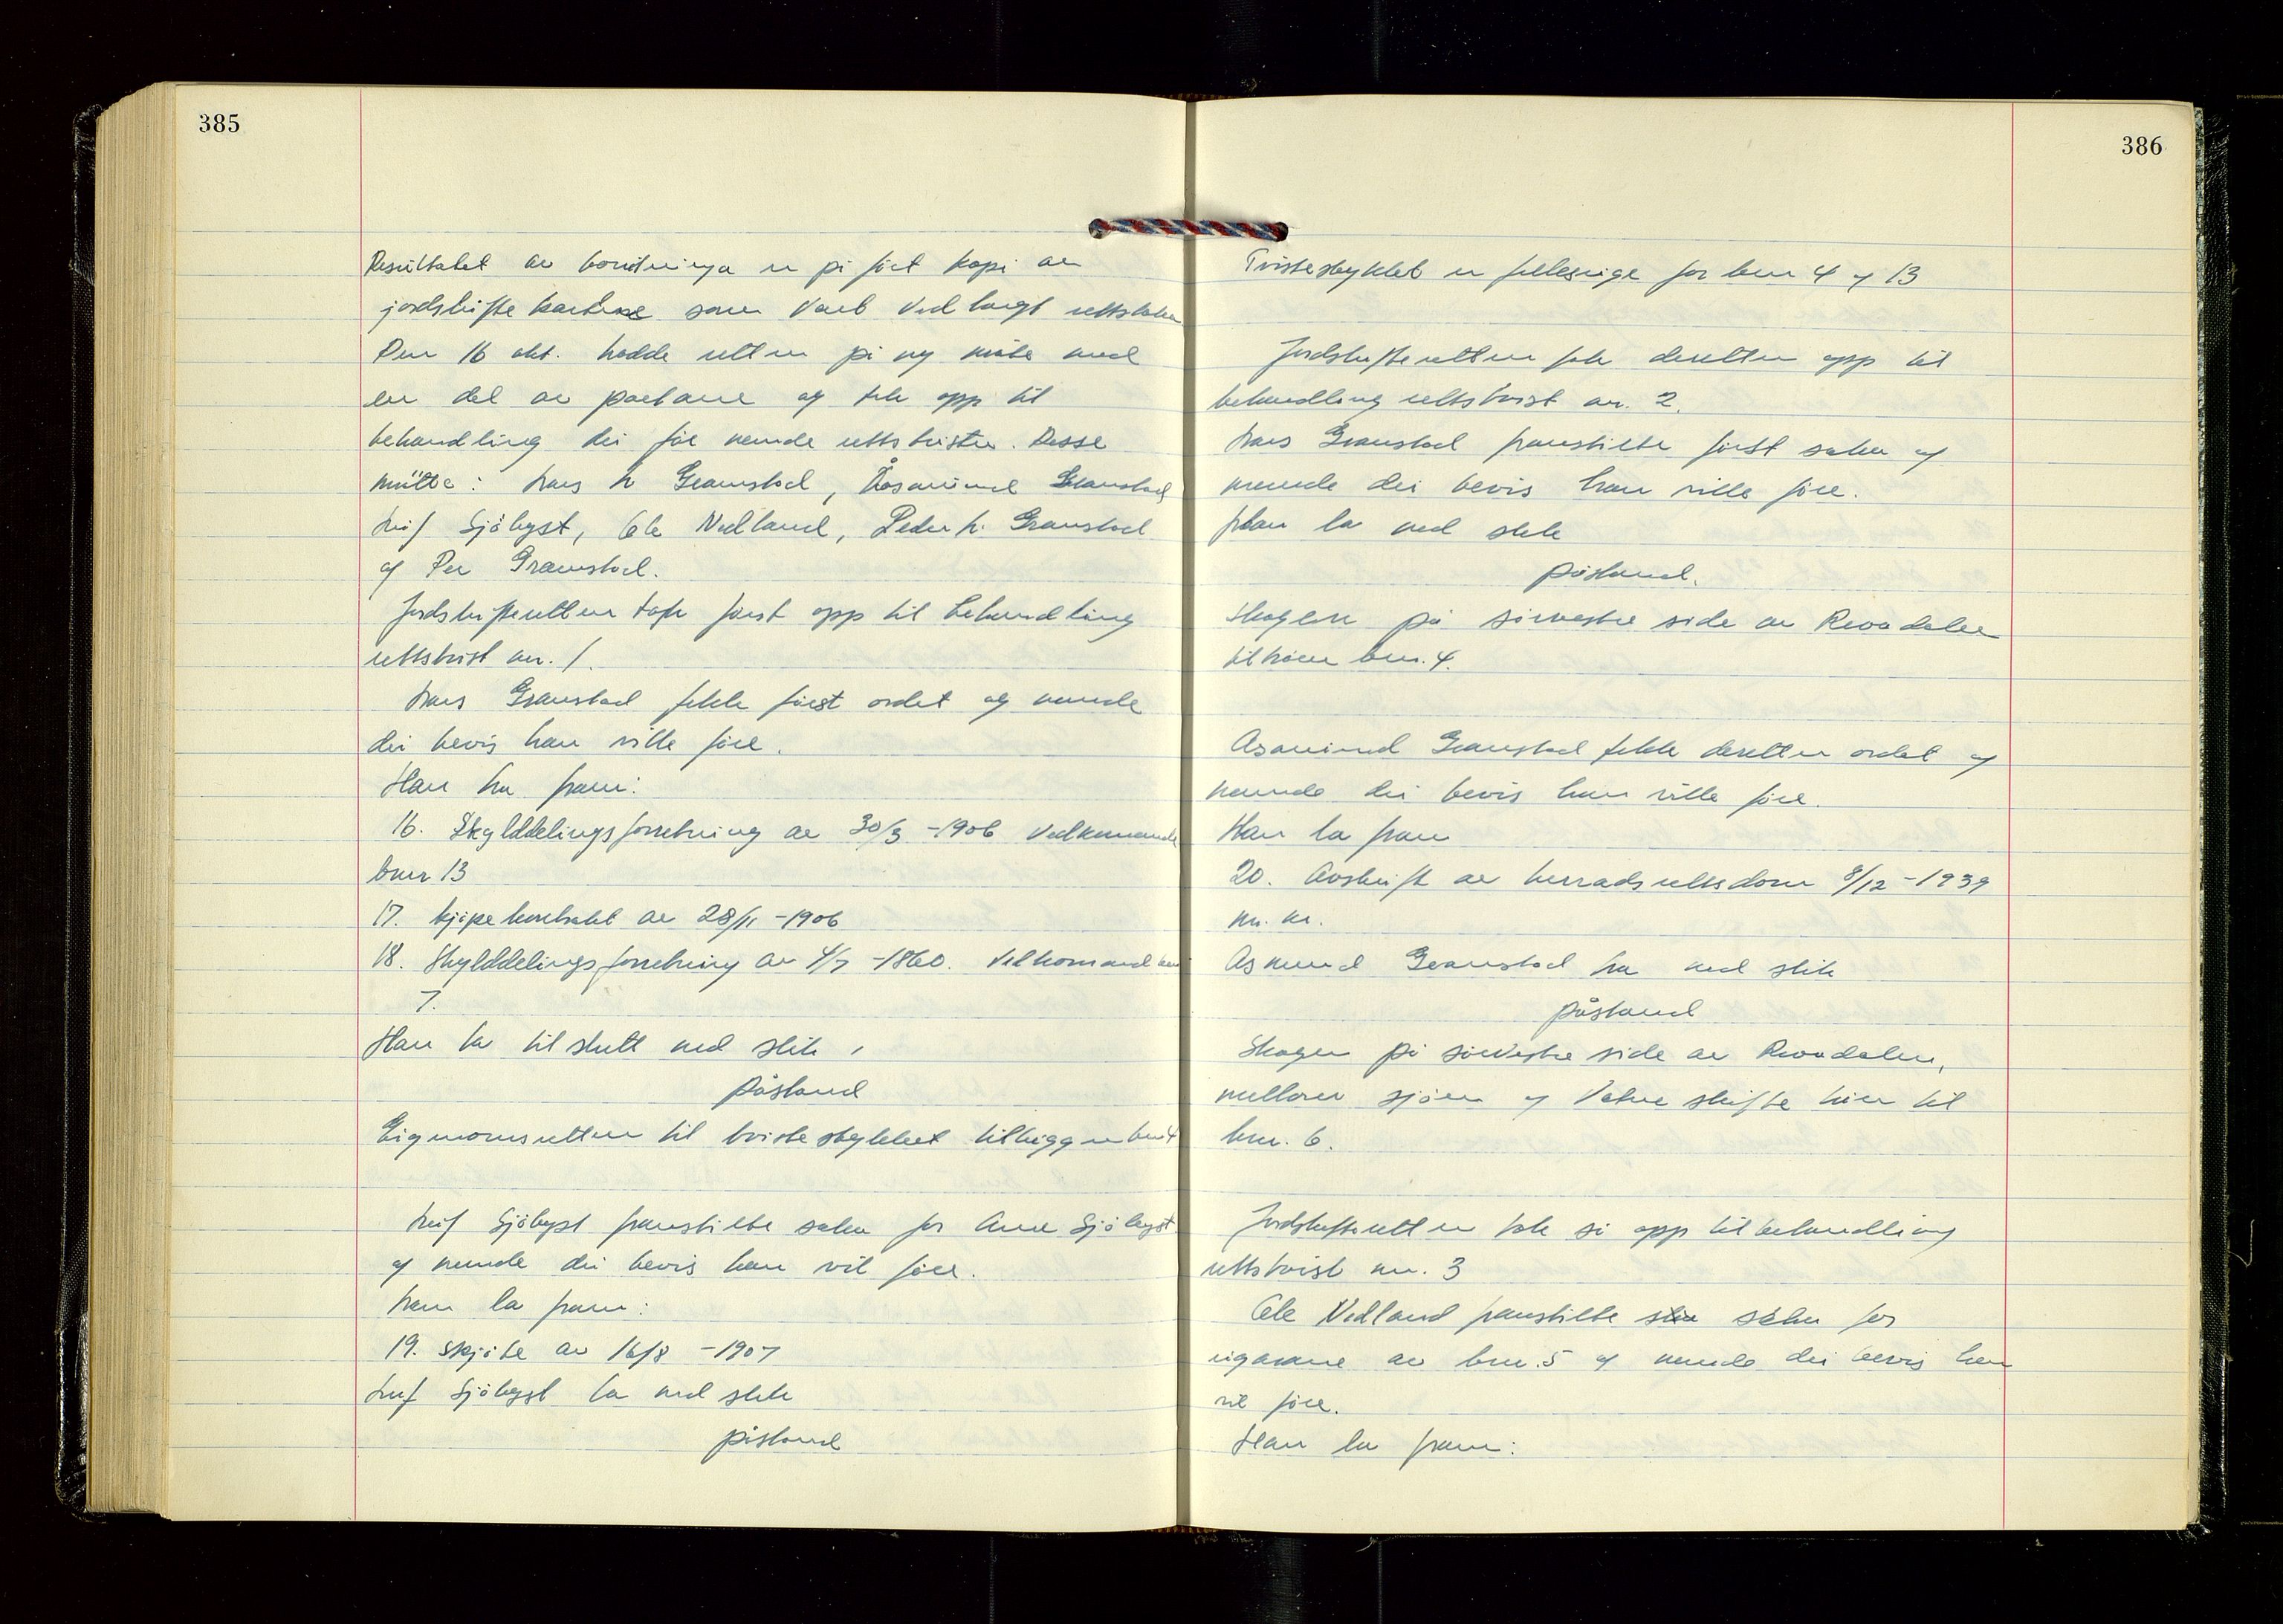 385
Resultatet av vurderinga er på ført kopi av
jordskiftekartene som vart vedlagt rettsboka
Den 16 okt. hadde retten på ny møte med
en del av partane og tok opp til
behandling dei før nemde rettstvister. Desse
møtte: Lars L Gramstad, Åsmund Gramstad
Leif Sjöbyst, Ole Vedland, Peder L. Gramstad
og Per Gramstad.
Jordskifteretten tok først opp til behandling
rettstvist nr. 1.
Lars Gramstad fekk først ordet og nemde
dei bevis han ville føre.
Han la fram:
16. Skylddelingsforretning av 30/3 -1906 vedkomande
bnr 13
17. kjøpekontrakt av 28/11 -1906
18. Skylddelingsforretning av 4/7 -1860. Vedkomand bnr
7.
Han la til slutt ned slik
påstand
Eigedomsretten til tvistestykket tilligger bnr 4
Leif Sjöbyst framstilte saka for Anna Sjöbyst
og nemde dei bevis han vil føre.
Han la fram:
19. skjøte av 16/8 -1907
Leif Sjöbyst la ned slik
påstand
386
Tvistestykket er felleseige for bnr 4 og 13
Jordskifteretten tok deretter opp til
behandling rettstvist nr. 2.
Lars Gramstad framstilte først saka og
nemde dei bevis han ville føre.
Han la ned slik
påstand.
Skogen på sørvestre side av Revadalen
tilhører bnr. 4.
Asmund Gramstad fekk deretter ordet og
nemde dei bevis han ville føre.
Han la fram
20. Avskrift av herradsrettsdom 8/12 -1939
m. m.
Asmund Gramstad la ned slik
påstand
Skogen på sørvestre side av Revadalen,
mellom sjøen og Vatne skifte hører til
bnr. 6.
Jordskifteretten tok så opp til behandling
rettstvist nr. 3
Ole Vedland framstilte saka for
eigarane av bnr. 5 og nemde dei bevis han
vil føre.
Han la fram: